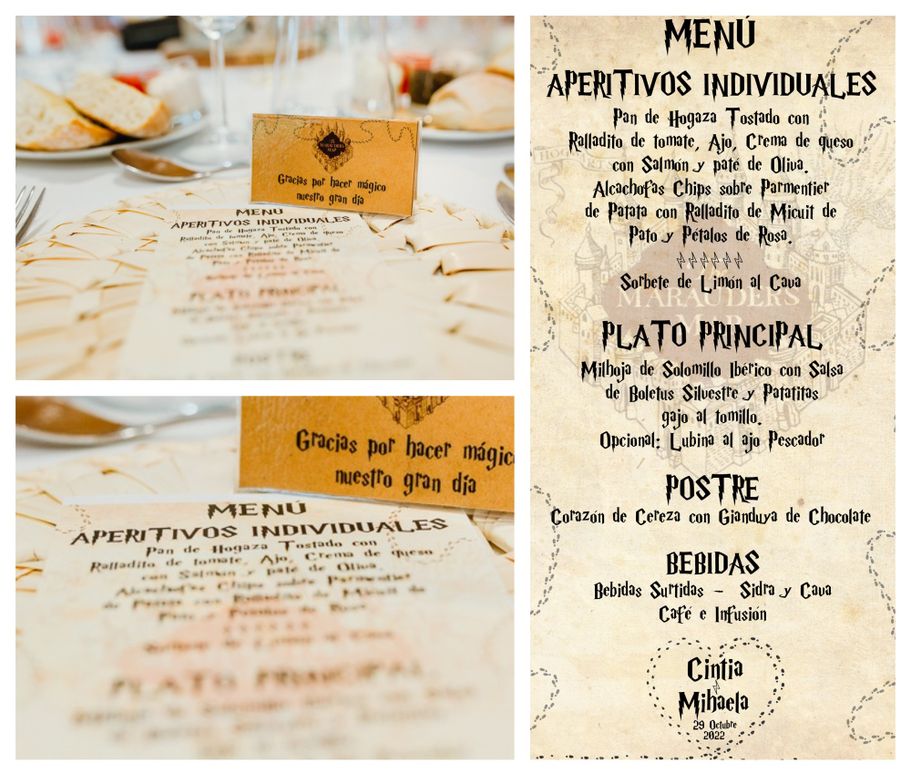 MARAUDER'S
MAP
Gracias por hacer mágico
nuestro gran día
MENÚ
APERITIVOS INDIVIDUALES
Pan de Hogaza Tostado con
Ralladito de tomate, Ajo, Crema de queso
con Salmón y paté de Oliva.
Alcachofas Chips sobre Parmentier
de Patata con Ralladito de Micuit de
PLATO PRINCIPAL
Gracias por hacer mágic
nuestro gran día
MENÚ
APERITIVOS INDIVIDUALES
Pan de Hogaza Tostado con
Ralladito de tomate, Ajo, Crema de queso
con Salmón y paté de Oliva.
Alcachofas Chips sobre Parmentier
de Patata con Ralladito de Micuit de
Pato y Pétalos de Rosa.
Sorbete de Limón al Cava
PLATO PRINCIPAL
MENÚ
APERITIVOS INDIVIDUALES
Pan de Hogaza Tostado con
Ralladito de tomate, Ajo, Crema de queso
con Salmón y paté de Oliva.
Alcachofas Chips sobre Parmentier
de Patata con Ralladito de Micuit de
Pato y Pétalos de Rosa.
Sorbete de Limón al Cava
MARAUDER'S
MAP
PLATO PRINCIPAL
Milhoja de Solomillo Ibérico con Salsa
de Boletus Silvestre y Patatitas
gajo al tomillo.
Opcional: Lubina al ajo Pescador
POSTRE
Corazón de Cereza con Gianduya de Chocolate
BEBIDAS
Bebidas Surtidas - Sidra y Cava
Café e Infusión
Cintia
Mihaela
29 Octubre
2022